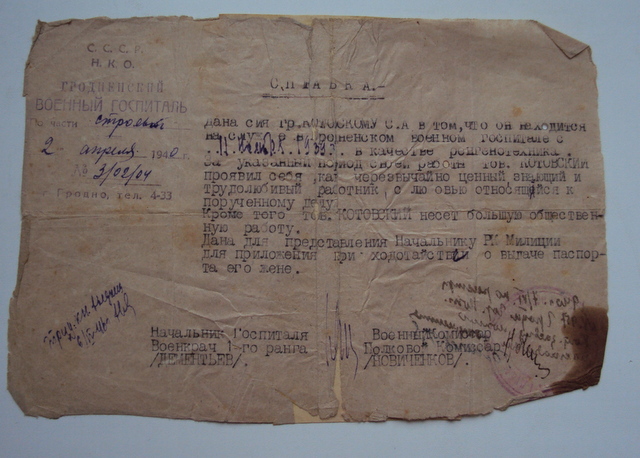 С. С. С. Р.
Н. К. О.
ГРОДНЕНСКИЙ
ВОЕННЫЙ ГОСПИТАЛЬ
по части строевой
2 апреля 1940 г
№ 3/02/04
г. Гродно, тел. 4-33
С П Р А В К А.-
Дана сия гр.КОТОВСКОМУ С.А в том,что он находится
на службе в Гродненском военном госпитале с
1939г. в качестве рентгенотехника.
За указанный период своей работы тов. КОТОВСКИЙ
проявил себя как черезвычайно ценный знающий и
трудолюбивый работник, с любовью относящейся к
порученному делу.
Кроме того тов. КОТОВСКИЙ несет большую обществен-
ную работу.
Дана для представления Начальнику РК Милиции
для приложения при ходотайствии о выдаче паспор-
та его жене.
Начальник Госпиталя
Военврач 1-го ранга
/ДЕМЕНТЬЕВ/
Военный Комиссар
Полковой Комиссар
/НОВИЧЕНКОВ/